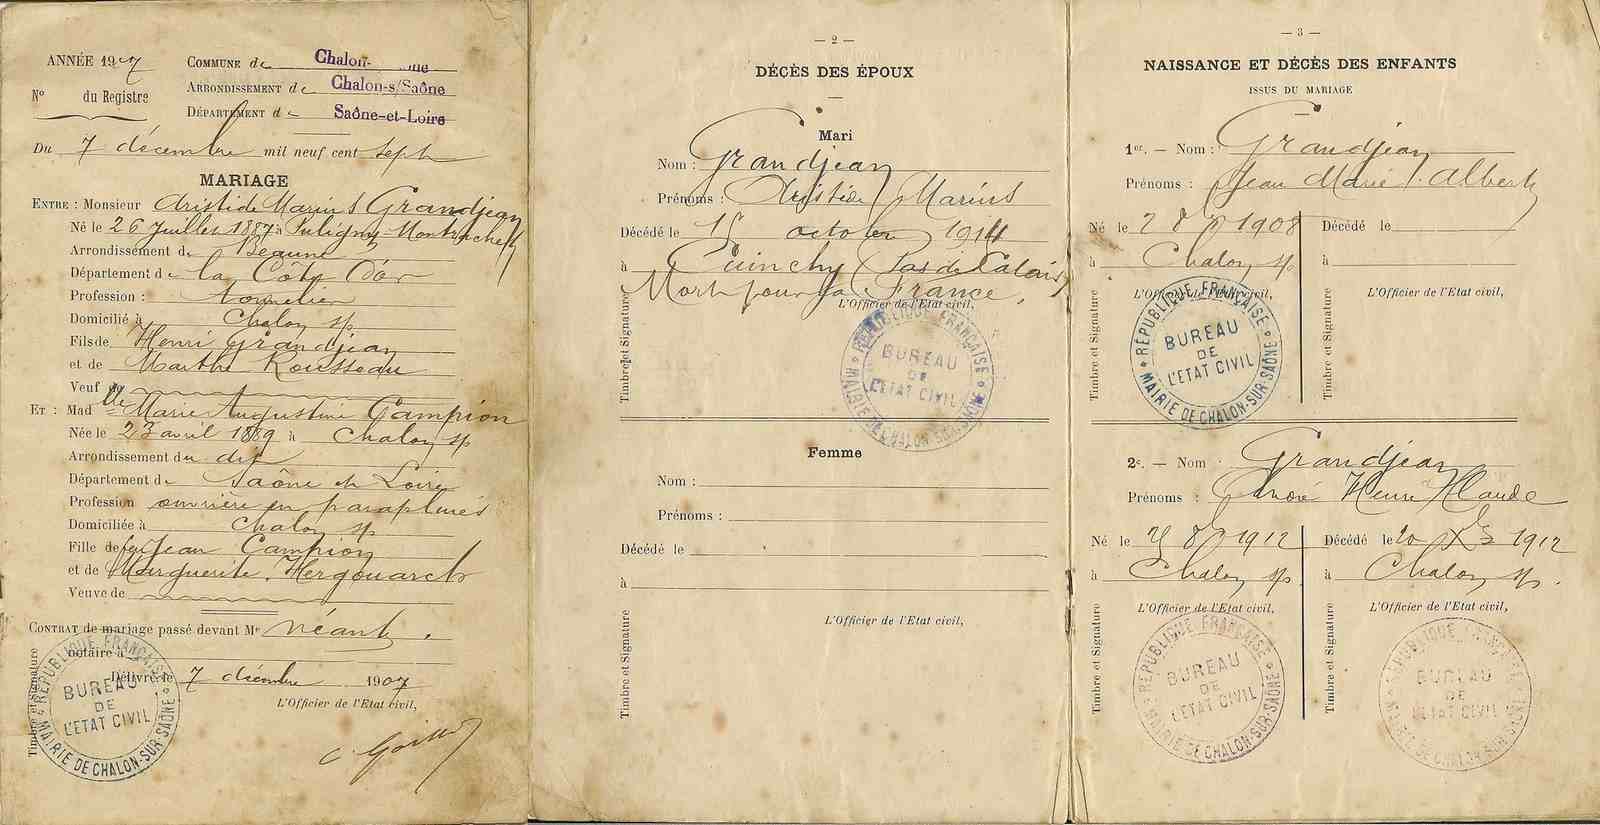 ANNÉE 1907
N° du Registre
COMMUNE de Chalon-
ARRONDISSEMENT de Chalon-s/Saône
DÉPARTEMENT de Saône-et-Loire
Du 7 décembre mil neuf cent sept
MARIAGE
ENTRE : Monsieur Aristide Marius Grandjean
Né le 26 Juillet 1887 à Puligny Montrachet
Arrondissement de Beaune
Département de la Côte D'or
Profession : tonnelier
Domicilié à Chalon s/s
Fils de Henri Grandjean
et de Marthe Rousseau
Veuf de
ET : Mad lle Marie Augustine Campion
Née le 23 avril 1889 à Chalon s/s
Arrondissement du dit
Département de Saône et Loire
Profession ouvrière en parapluies
Domiciliée à Chalon s/s
Fille de feu Jean Campion
et de Marguerite
Veuve de
CONTRAT de mariage passé devant Me néant.
notaire à
Délivré le 7 décembre 1907
L'Officier de l'État civil,
Timbre et Signature
RÉPUBLIQUE FRANÇAISE
BUREAU
DE
L'ÉTAT CIVIL
MAIRIE DE CHALON-SUR-SAÔNE
— 2 —
DÉCÈS DES ÉPOUX
Mari
Nom : Grandjean
Prénoms : Aristide Marius
Décédé le octobre 1914
à Cuinchy (Pas de Calais)
Mort pour la France.
L'Officier de l'État civil,
Timbre et Signature
RÉPUBLIQUE FRANÇAISE
BUREAU
DE
L'ÉTAT CIVIL
MAIRIE DE CHALON-SUR-SAÔNE
Femme
Nom :
Prénoms :
Décédé le
à
L'Officier de l'État civil,
Timbre et Signature
— 3 —
NAISSANCE ET DÉCÈS DES ENFANTS
ISSUS DU MARIAGE
1er. — Nom : Grandjean
Prénoms : Jean Marie Albert
Né le 1908
à Chalon s/s
L'Officier de l'État civil,
Timbre et Signature
RÉPUBLIQUE FRANÇAISE
BUREAU
DE
L'ÉTAT CIVIL
MAIRIE DE CHALON-SUR-SAÔNE
Décédé le
à
L'Officier de l'État civil,
Timbre et Signature
2e. — Nom : Grandjean
Prénoms : André Henri Claude
Né le 1912
à Chalon s/s
L'Officier de l'État civil,
Timbre et Signature
RÉPUBLIQUE FRANÇAISE
BUREAU
DE
L'ÉTAT CIVIL
MAIRIE DE CHALON-SUR-SAÔNE
Décédé le 20 1912
à Chalon s/s.
L'Officier de l'État civil,
Timbre et Signature
RÉPUBLIQUE FRANÇAISE
BUREAU
DE
L'ÉTAT CIVIL
MAIRIE DE CHALON-SUR-SAÔNE